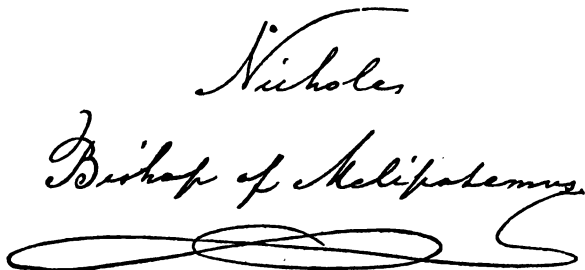 Nicholas
Bishop of Melipotamus.